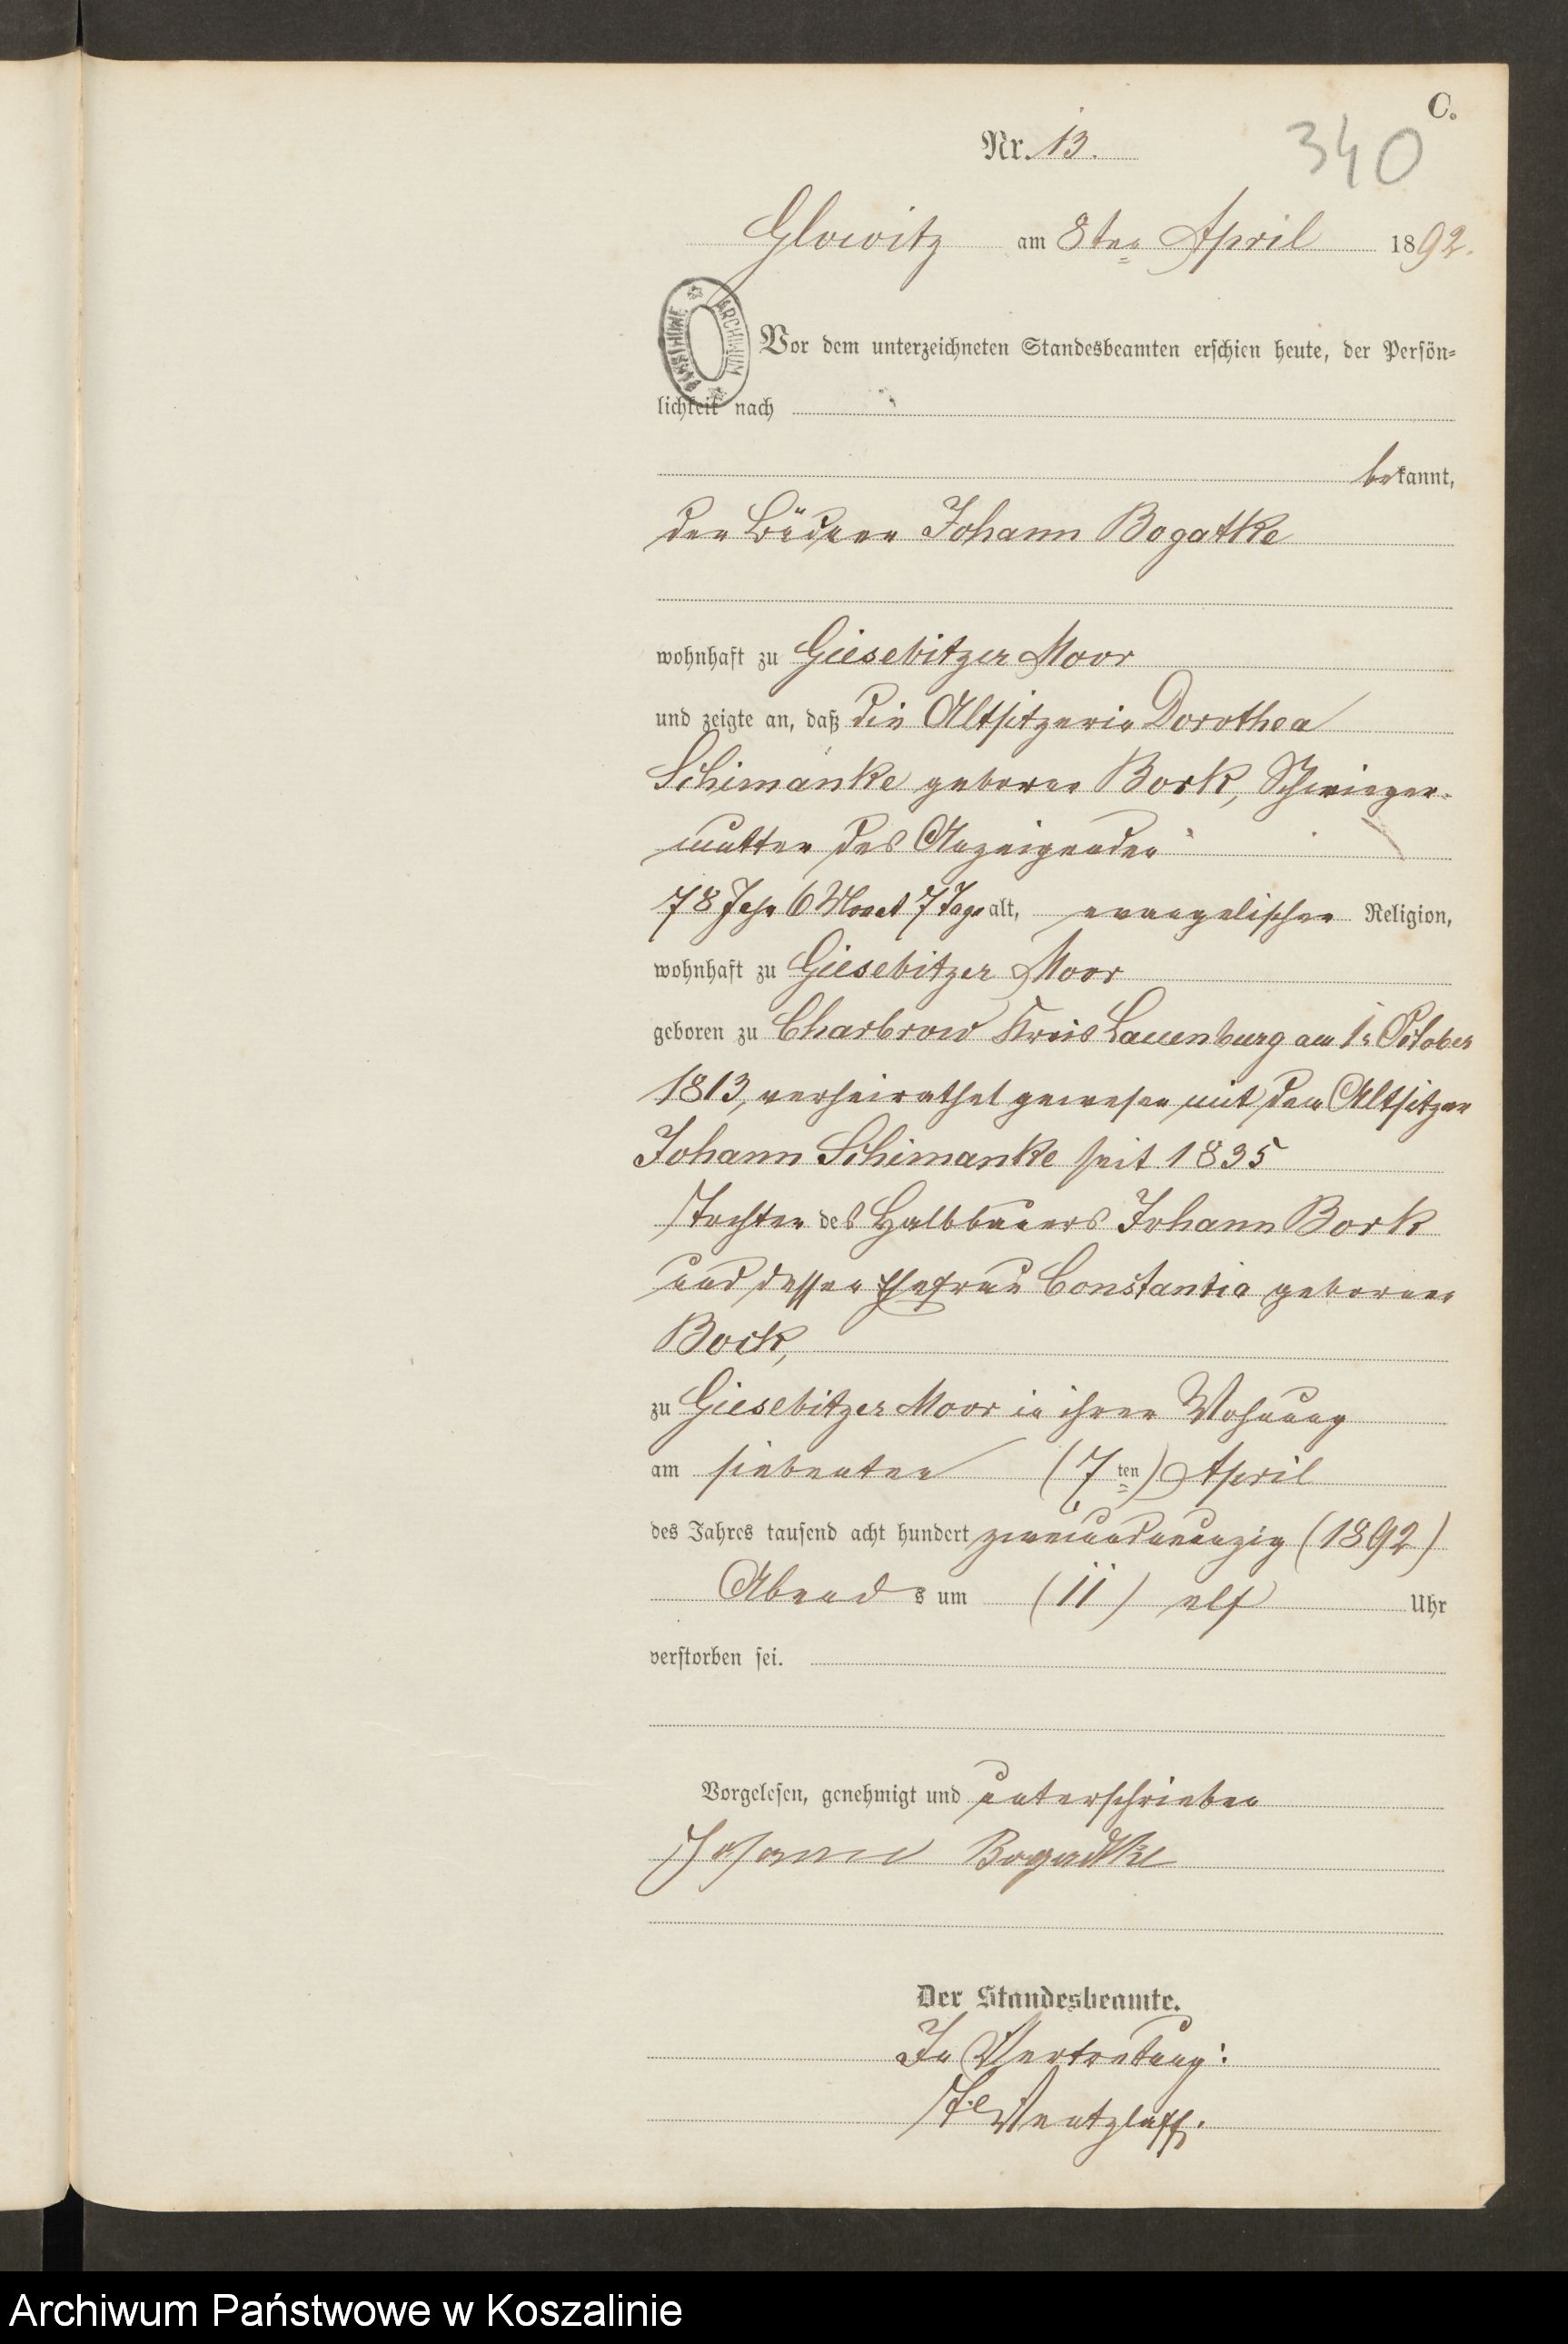 C.
Nr. 13.
340
Glowitz am 8ten April 1892.
ARCHIWUM
Vor dem unterzeichneten Standesbeamten erschien heute, der Persön-
lichkeit nach
bekannt,
der Büdner Johann Bogatke
wohnhaft zu Giesebitzer Moor
und zeigte an, daß die Altsitzerin Dorothea
Schimanke geborne Bork, Schwieger-
mutter des Anzeigenden
78 Jahr 6 Monat 7 Tage alt, evangelischer Religion,
wohnhaft zu Giesebitzer Moor
geboren zu Charbrow Kreis Lauenburg am 1. October
1813, verheirathet gewesen mit dem Altsitzer
Johann Schimanke seit 1835
Tochter des Halbbauers Johann Bork
und dessen Ehefrau Constantia geborner
Bock,
zu Giesebitzer Moor in ihrer Wohnung
am siebenten (7 ten) April
des Jahres tausend acht hundert zweiundneunzig (1892)
Abends um (11) elf Uhr
verstorben sei.
Vorgelesen, genehmigt und unterschrieben
Johann Bogadtke
Der Standesbeamte.
In Vertretung:
Wentzlaff.
Archiwum Państwowe w Koszalinie